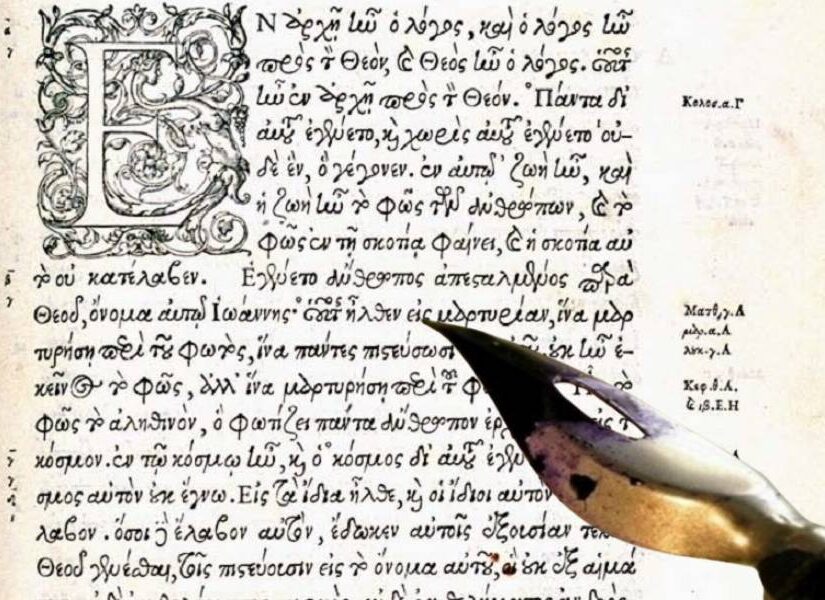 ΕΝ ἀρχῇ ἦν ὁ λόγος, καὶ ὁ λόγος ἦν
πρὸς τὸν Θεόν, καὶ Θεὸς ἦν ὁ λόγος. οὗτος
ἦν ἐν ἀρχῇ πρὸς τὸν Θεόν. Πάντα δι'
αὐτοῦ ἐγένετο, καὶ χωρὶς αὐτοῦ ἐγένετο οὐ-
δὲ ἕν, ὃ γέγονεν. ἐν αὐτῷ ζωὴ ἦν, καὶ
ἡ ζωὴ ἦν τὸ φῶς τῶν ἀνθρώπων, καὶ τὸ
φῶς ἐν τῇ σκοτίᾳ φαίνει, καὶ ἡ σκοτία αὐ
τὸ οὐ κατέλαβεν. Ἐγένετο ἄνθρωπος ἀπεσταλμένος παρὰ
Θεοῦ, ὄνομα αὐτῷ Ἰωάννης· οὗτος ἦλθεν εἰς μαρτυρίαν, ἵνα μαρ
τυρήσῃ περὶ τοῦ φωτός, ἵνα πάντες πιστεύσωσι οὐκ ἦν ἐ-
κεῖνος τὸ φῶς, ἀλλ' ἵνα μαρτυρήσῃ περὶ τοῦ τὸ
φῶς τὸ ἀληθινὸν, ὃ φωτίζει πάντα ἄνθρωπον
κόσμον. ἐν τῷ κόσμῳ ἦν, καὶ ὁ κόσμος δι' αὐτοῦ
σμος αὐτὸν οὐκ ἔγνω. Εἰς τὰ ἴδια ἦλθε, καὶ οἱ ἴδιοι αὐτὸν
λαβον. ὅσοι δὲ ἔλαβον αὐτὸν, ἔδωκεν αὐτοῖς ἐξουσίαν
Θεοῦ γενέσθαι, τοῖς πιστεύουσιν εἰς τὸ ὄνομα αὐτοῦ, οἳ οὐκ ἐξ αἱμά
Κολοσ.α.Γ
Ματθ.γ.Α
μαρ.α.Α
λυκ.γ.Α
Κεφ.θ.Α.
καὶ ιβ.Ε.Η